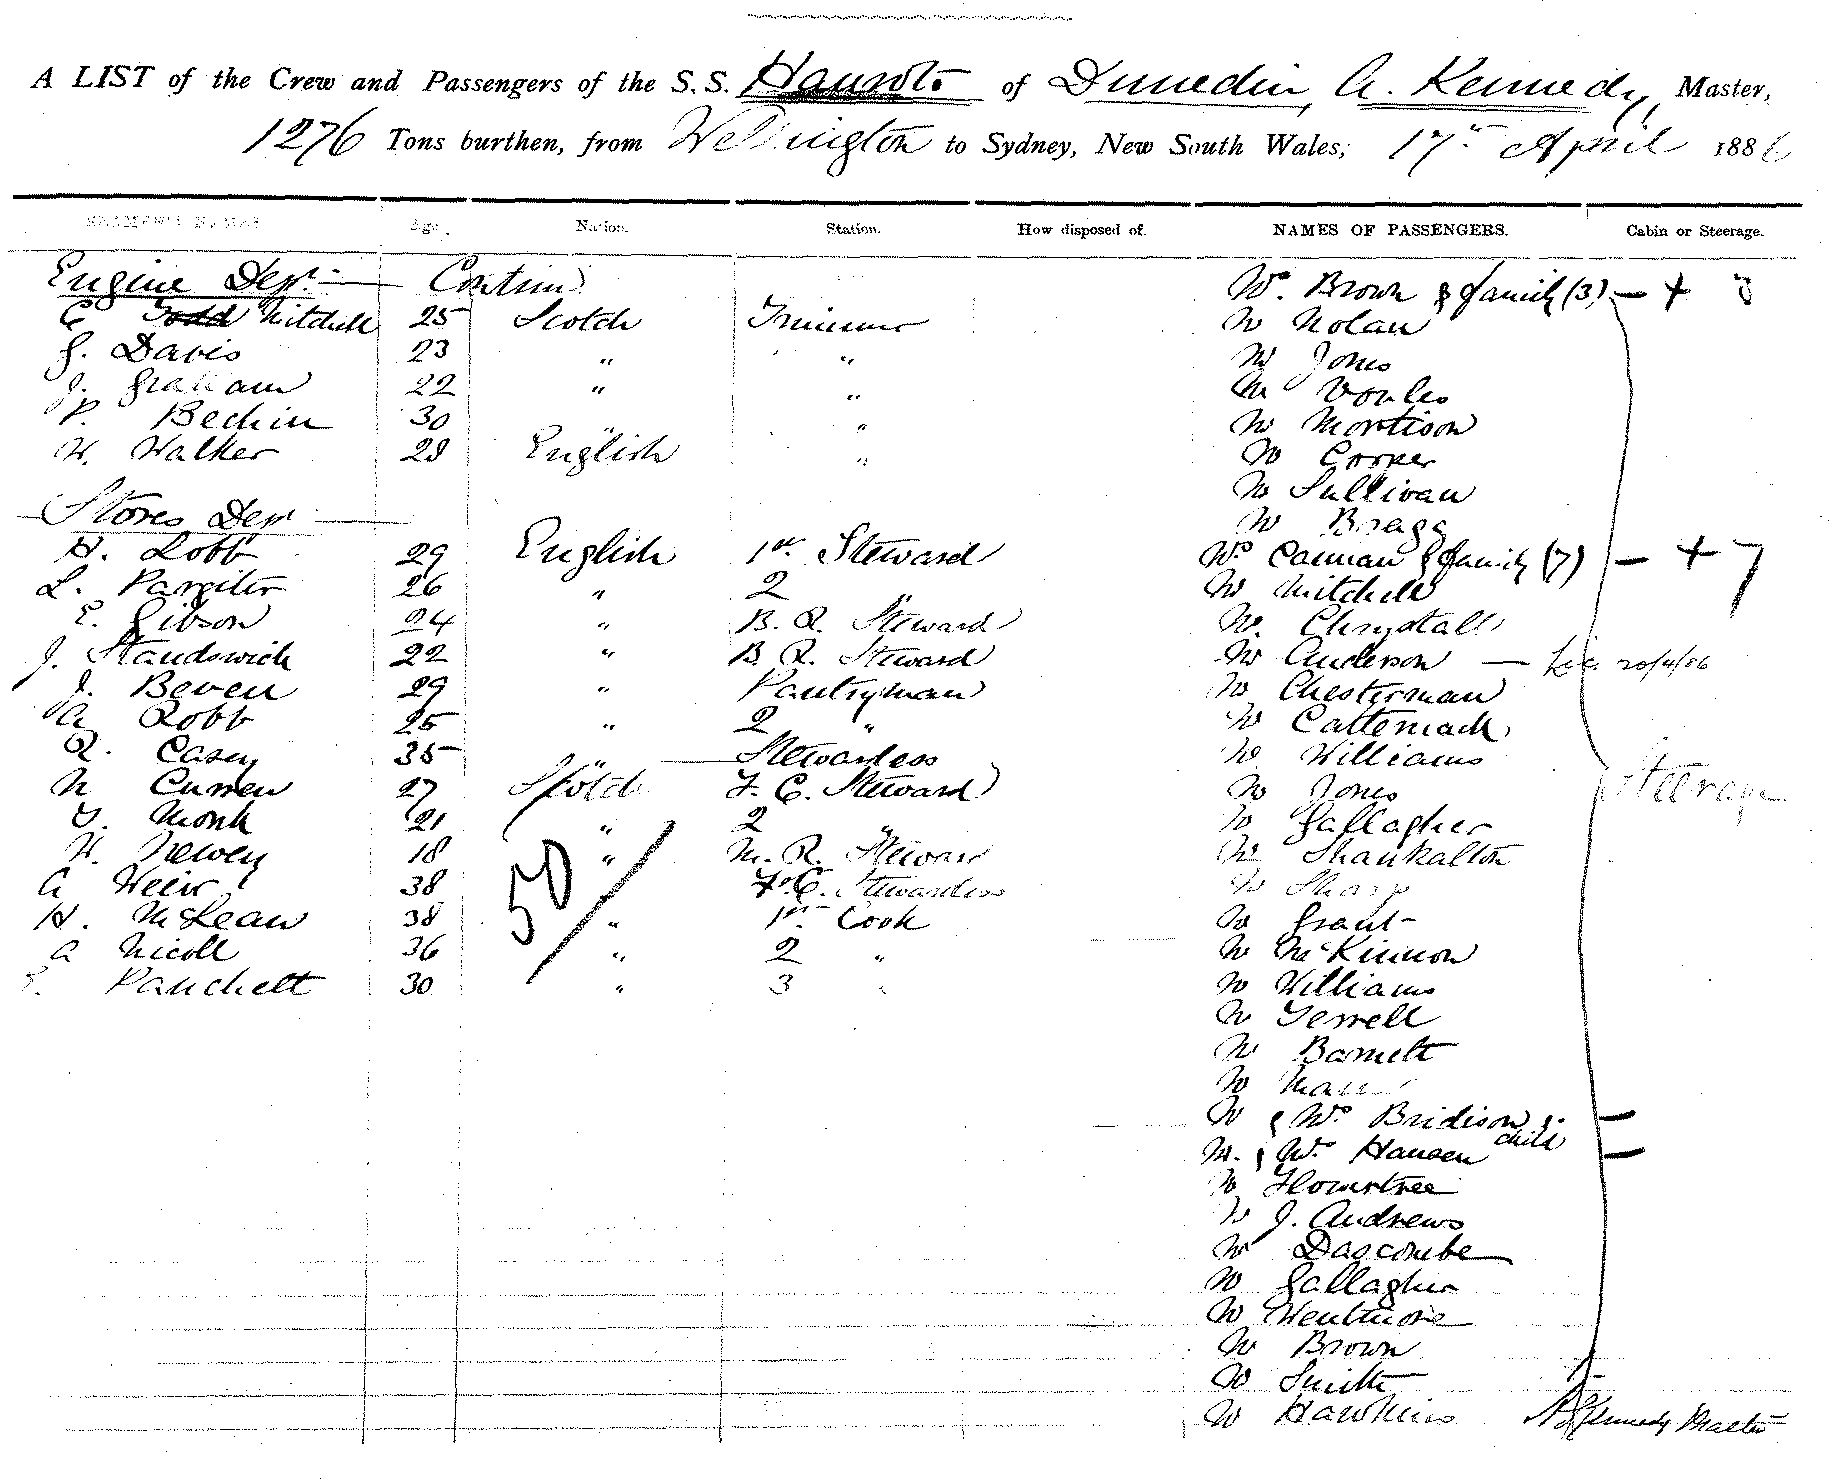 A LIST of the Crew and Passengers of the S.S. Hauroto of Dunedin, A. Kennedy, Master,
1276 Tons burthen, from Wellington to Sydney, New South Wales; 17th April 1886
Age Nation. Station. How disposed of. NAMES OF PASSENGERS. Cabin or Steerage.
Engine Dept Contind Mrs Brown & family (3) — +
C Mitchell 25 Scotch Trimmer Mr Nolan
G. Davis 23 " " Mr Jones
J. Graham 22 " " Mr Voules
P. Bechin 30 " " Mr Morrison
W. Walker 28 English " Mr Cooper
Mr Sullivan
Stores Dept Mr Bragg
H. Robb 29 English 1st Steward Mrs Canman & family (7) — + 7
L. Pargiter 26 " 2 " Mr Mitchell
E. Gibson 24 " B. R. Steward Mr Chrystall
J. Standswick 22 " B. R. Steward Mr Anderson — 20/4/86
J. Beven 29 " Pantryman Mr Chesterman
A Robb 25 " 2 " Mr Cattenach
R. Casey 35 " Stewardess Mr Williams
N Curren 27 Scotch F. C. Steward Mr Jones Steerage
T. Monk 21 " 2 " Mr Gallagher
W. Newey 18 " M. R. Steward Mr Shankalton
A Weir 38 F. C. Stewardess Mr Sharp
50/
H. McLean 38 " 1st Cook Mr Grant
A Nicoll 36 " 2 " Mr McKinnon
Panchett 30 " 3 " Mr Williams
Mr Terrell
Mr Barnett
Mr
Mr & Mrs Bridison & child —
Mr & Mrs Hansen —
Mr Flowertree
Mr J. Andrews
Mr Dascombe
Mr Gallagher
Mr Wentmore
Mr Brown
Mr Smith
Mr Hawkins A Kennedy Master